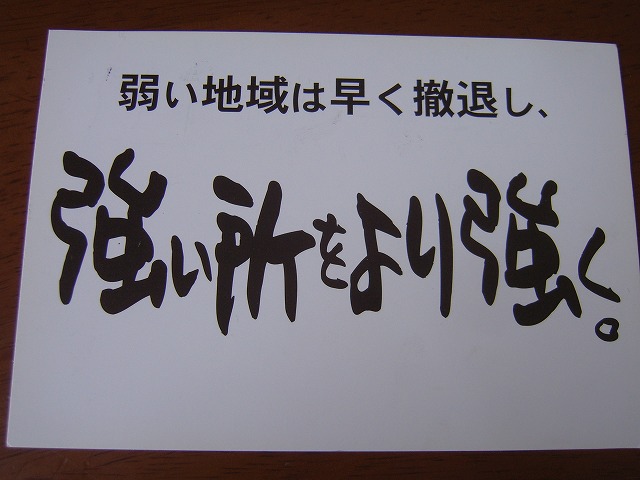 弱い地域は早く撤退し、
強い所をより強く。